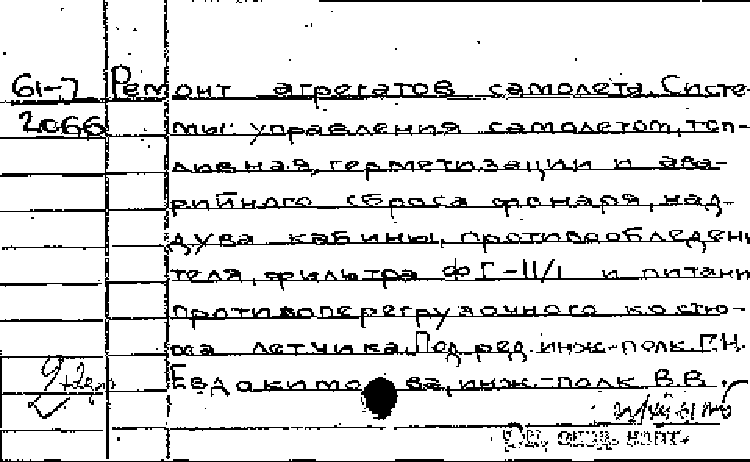 61-7 Ремонт агрегатов самолета. Систе-
2066 мы: управления самолетом, топ-
ливная, герметизации и ава-
рийного сброса фонаря, над-
дува кабины, противообледени
теля, фильтра ФГ-11/1 и питани
противоперегрузочного костю-
ма летчика. Под ред. инж-полк. Г.Н.
Евдокимова, инж.-полк. В.В.